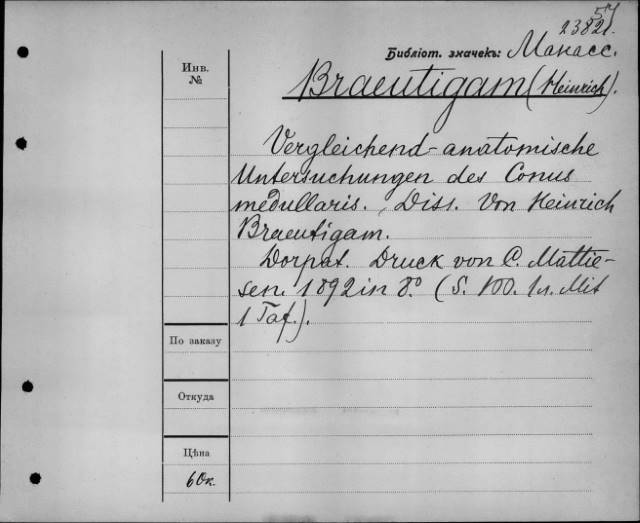 57
2382.
Библіот. значекъ: Манасс.
Инв.
№
Braeutigam (Heinrich).
Vergleichend-anatomische
Untersuchungen des Conus
medullaris. Diss. Von Heinrich
Braeutigam.
Dorpat. Druck von C. Mattie-
sen. 1892 in 8° (S. 100. 1 л. Mit
1 Taf.).
По заказу
Откуда
Цѣна
60к.